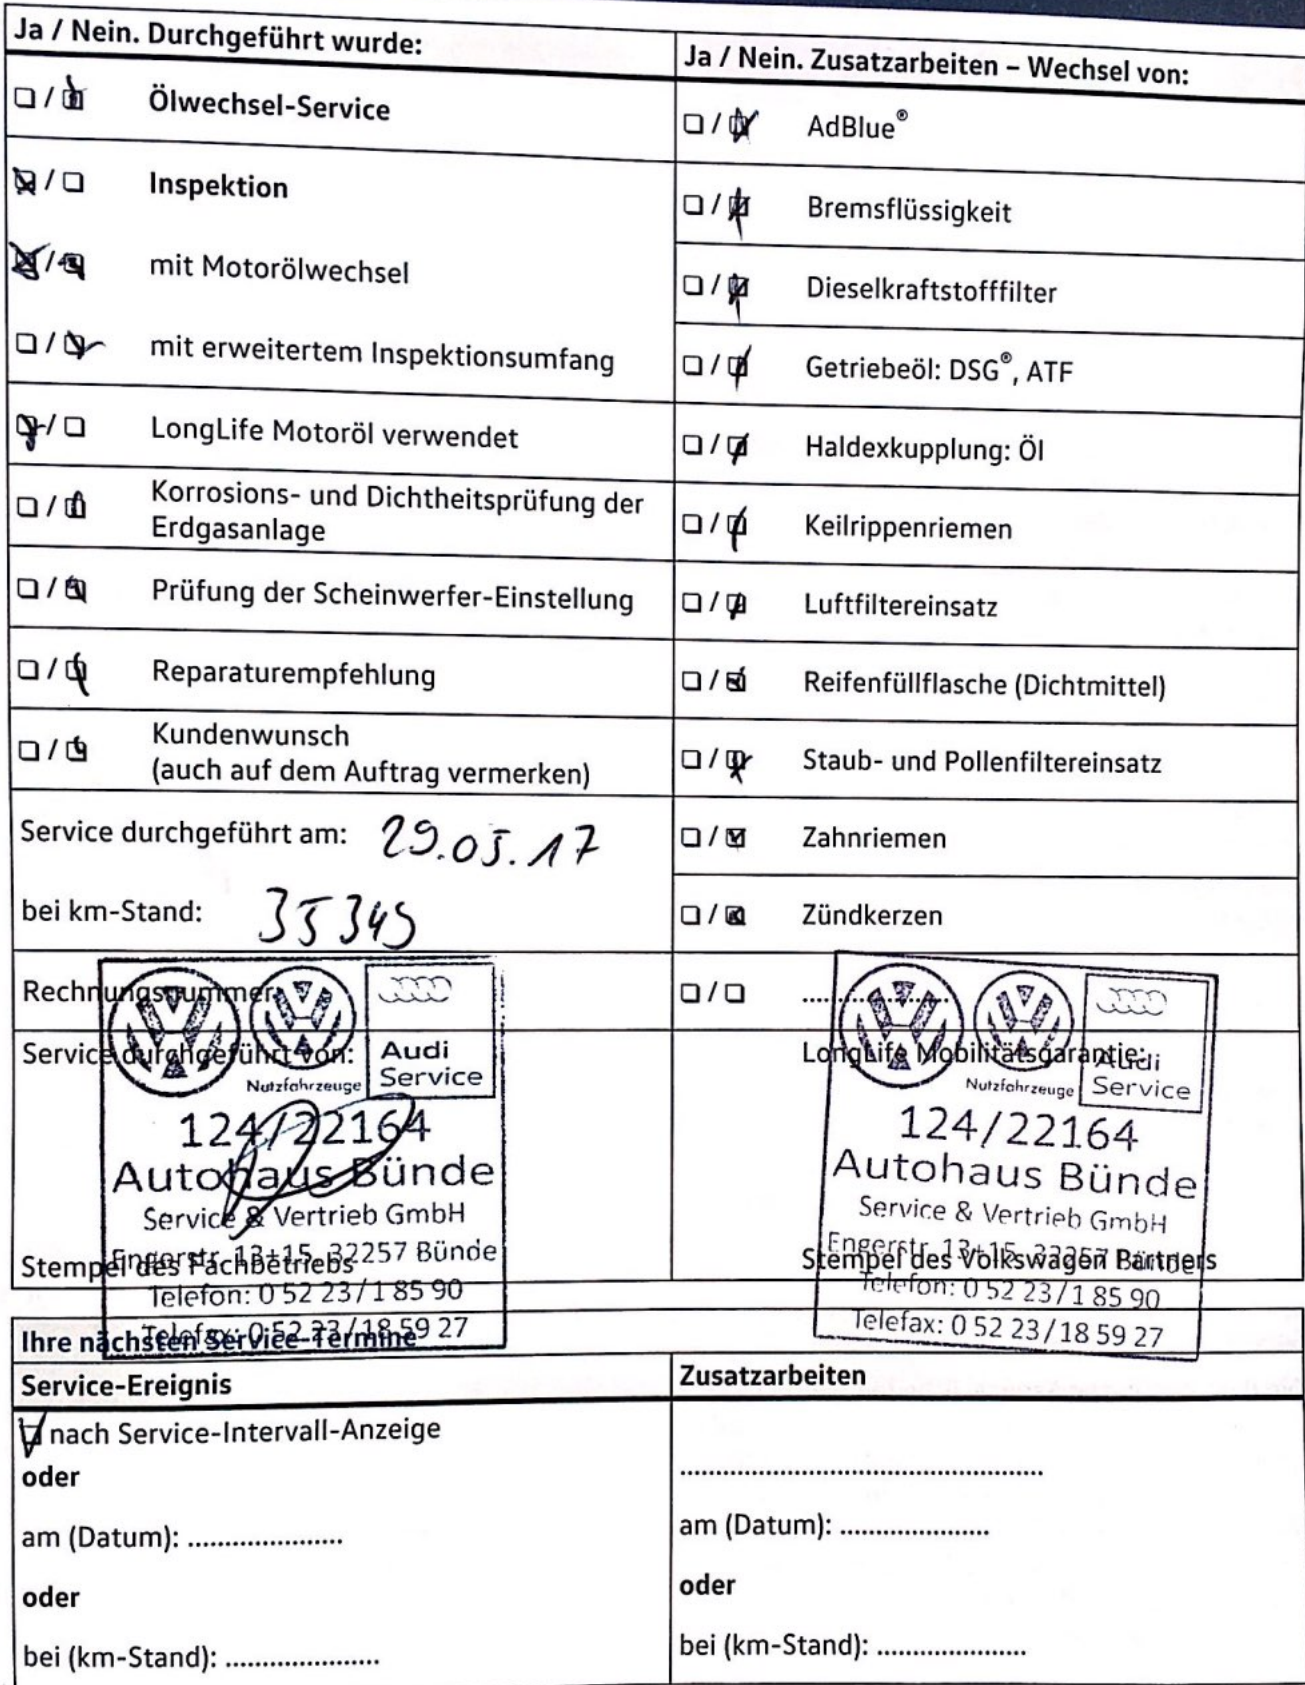 Ja / Nein. Durchgeführt wurde:
Ölwechsel-Service
Inspektion
mit Motorölwechsel
mit erweitertem Inspektionsumfang
LongLife Motoröl verwendet
Korrosions- und Dichtheitsprüfung der
Erdgasanlage
Prüfung der Scheinwerfer-Einstellung
Reparaturempfehlung
Kundenwunsch
(auch auf dem Auftrag vermerken)
Service durchgeführt am: 29.05.17
bei km-Stand: 35345
Rechnungsnummer:
Service durchgeführt von:
Nutzfahrzeuge
Audi
Service
124/22164
Autohaus Bünde
Service & Vertrieb GmbH
Engerstr. 13+15, 32257 Bünde
Stempel des Fachbetriebs
Telefon: 0 52 23/1 85 90
Telefax: 0 52 23/18 59 27
Ja / Nein. Zusatzarbeiten – Wechsel von:
AdBlue®
Bremsflüssigkeit
Dieselkraftstofffilter
Getriebeöl: DSG®, ATF
Haldexkupplung: Öl
Keilrippenriemen
Luftfiltereinsatz
Reifenfüllflasche (Dichtmittel)
Staub- und Pollenfiltereinsatz
Zahnriemen
Zündkerzen
LongLife Mobilitätsgarantie:
Nutzfahrzeuge
Audi
Service
124/22164
Autohaus Bünde
Service & Vertrieb GmbH
Engerstr. 13+15, 32257 Bünde
Stempel des Volkswagen Partners
Telefon: 0 52 23/1 85 90
Telefax: 0 52 23/18 59 27
Ihre nächsten Service-Termine
Service-Ereignis
nach Service-Intervall-Anzeige
oder
am (Datum): .....................
oder
bei (km-Stand): .....................
Zusatzarbeiten
am (Datum): .....................
oder
bei (km-Stand): .....................